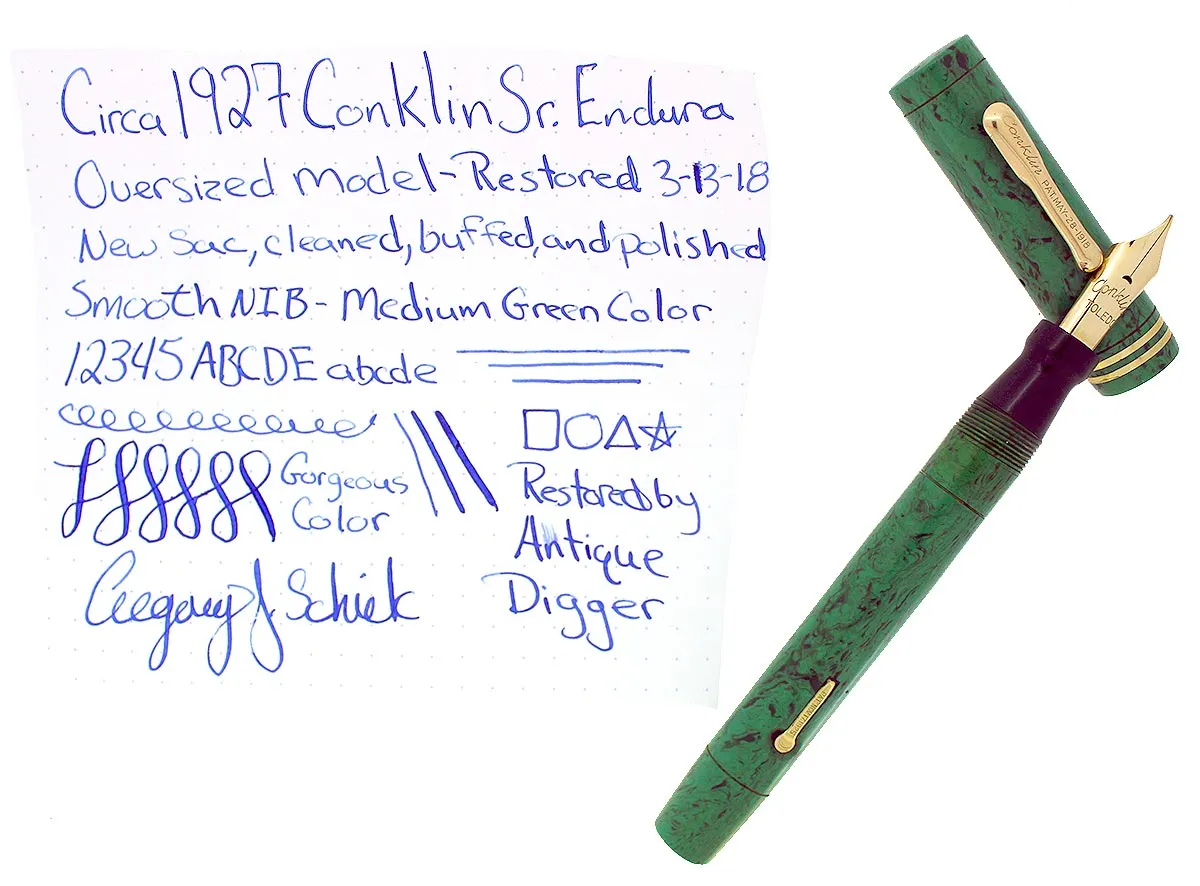 Circa 1927 Conklin Sr. Endura
Oversized Model - Restored 3-13-18
New Sac, cleaned, buffed, and polished
Smooth NIB - Medium Green Color
12345 ABCDE abcde
Gorgeous
Color
Restored by
Antique
Digger
Gregory J Schiek
Conklin
PAT. MAY-28-1918
Conklin
TOLEDO